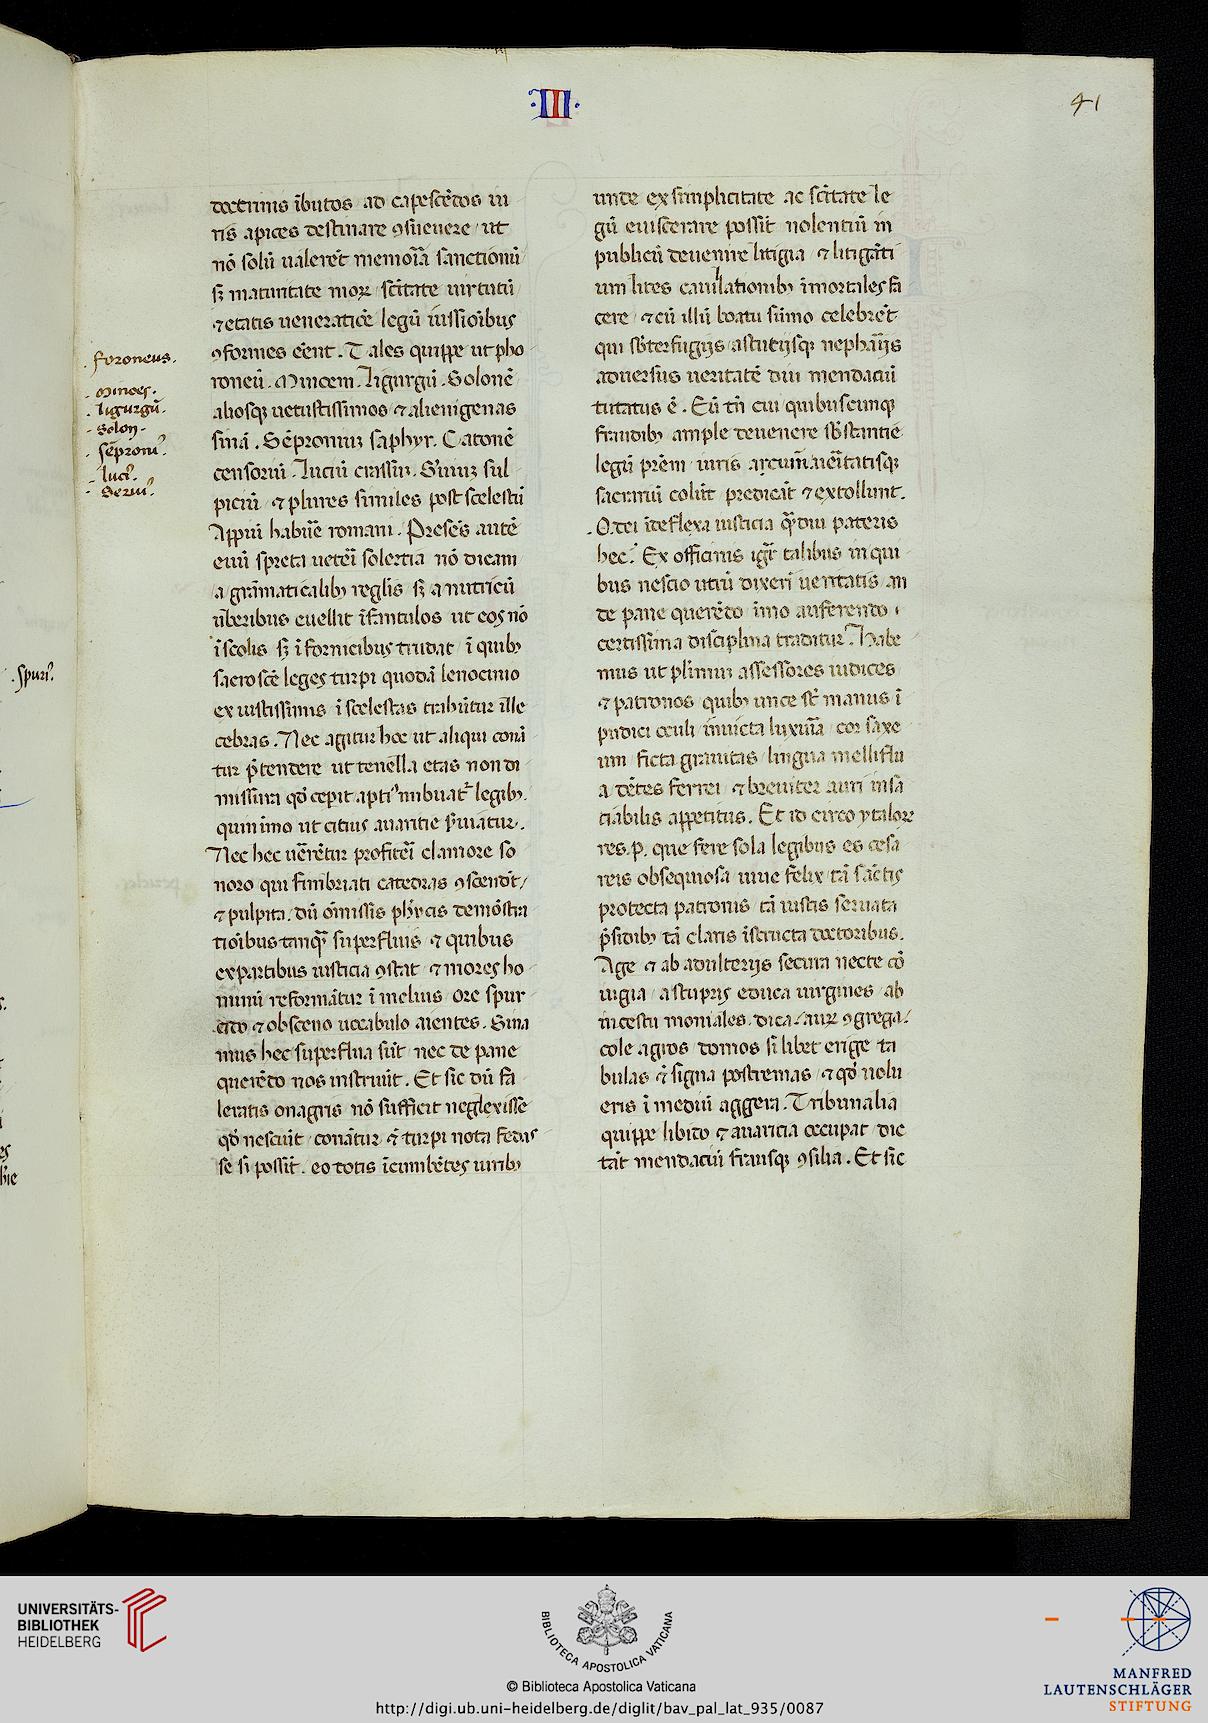 ·III·
41
doctrinis ībutos ad capescēdos iu
ris apices destinare ꝯsueuere ut
nō solū ualerēt memoīa sanctionū
sꝫ maturitate moꝝ scītate uirtutū
⁊ etatis ueneratiōe legū iussioībus
ꝯformes eēnt. Tales quippe ut pho
roneū. Minoem. Ligurgū. Solonē
aliosqꝫ uetustissimos ⁊ alienigenas
sinā. Sēproniuꝫ saphyr. Catonē
censoriū. Luciū crassū. Seruiuꝫ sul
piciū ⁊ plures similes post scelestū
Appiū habuēe romani. Presēs autē
euū spreta ueteī solertia nō dicam
a grāmaticalibꝫ reglis sꝫ a nutricū
ūberibus euellit īfantulos ut eos nō
ī scolis sꝫ ī fornicibus trudat ī quibꝫ
sacroscē leges turpi quodā lenocinio
ex iustissimis ī scelestas trahūtur ille
cebras. Nec agitur hoc ut aliqui conā
tur p̄tendere ut tenella etas non di
missura qd̄ cepit aptiꝰ imbuat᷑ legibꝫ.
quin imo ut citius auaritie ẜuiatur.
Nec hec uērētur profiteī clamore so
noro qui fimbriati catedras ꝯscendūt
⁊ pulpita. dū om̄issis phycis demōstra
tioībus tanqꝫ superfluis ⁊ quibus
ex partibus iusticia ꝯstat ⁊ mores ho
minū reformātur ī melius ore spur
cido ⁊ obsceno uocabulo aientes. Sina
mus hec superflua sūt nec de pane
querēdo nos instruūt. Et sic dū fa
leratis onagris nō sufficit neglexisse
qd̄ nesciūt conātur ⁊ turpi nota fedas
se si possīt. eo totis īcumbētes uiribꝫ
unde ex simplicitate ac scītate le
gū euiscerare possīt nolentiū in
publicū deuenire litigia ⁊ litigāti
um lites cauillationibꝫ īmortales fa
cere ⁊ eū illū boatu sūmo celebrēt
qui sb̄terfugijs astutijsqꝫ nephāijs
aduersus ueritatē diu mendaciū
tutatus ē. Eū tn̄ cui quibuscunqꝫ
fraudibꝫ ample deuenere sb̄stantie
legū prēm iuris arcuꝫ ueītatisqꝫ
sacrariū colūt predicāt ⁊ extollunt.
O dei īdeflexa iusticia qͣdiu pateris
hec. Ex officinis igr̄ talibus in qui
bus nescio utrū dixerī ueritatis an
de pane querēdo īmo auferendo
certissima disciplina traditur. Habe
mus ut plīmum assessores iudices
⁊ patronos quibꝫ unce st̄ manus ī
pudici oculi īuicta luxuīa cor saxe
um ficta grauitas lingua melliflu
a dētes ferrei ⁊ breuiter auri insa
ciabilis appetitus. Et id circo ytaloꝝ
res.p. que fere sola legibus es cesa
reis obsequiosa uiue felix tā sāctis
protecta patronis tā iustis seruata
p̄sidibꝫ tā claris īstructa doctoribus.
Age ⁊ ab adulterijs secura necte cō
iugia a stupris educa uirgines ab
incestu moniales. dica. auꝝ ꝯgrega.
cole agros domos si libet erige ta
bulas ⁊ signa postremas ⁊ qd̄ uolu
eris ī mediū aggera. Tribunalia
quippe libido ⁊ auaricia occupāt dic
tāt mendaciū frausqꝫ ꝯsilia. Et sic
. foroneus.
. Minoes.
. ligurgū.
. Solon.
. sēproniꝰ.
. luciꝰ.
. Seruiꝰ.
. spuriꝰ.
UNIVERSITÄTS-
BIBLIOTHEK
HEIDELBERG
BIBLIOTECA APOSTOLICA VATICANA
© Biblioteca Apostolica Vaticana
http://digi.ub.uni-heidelberg.de/diglit/bav_pal_lat_935/0087
MANFRED
LAUTENSCHLÄGER
STIFTUNG